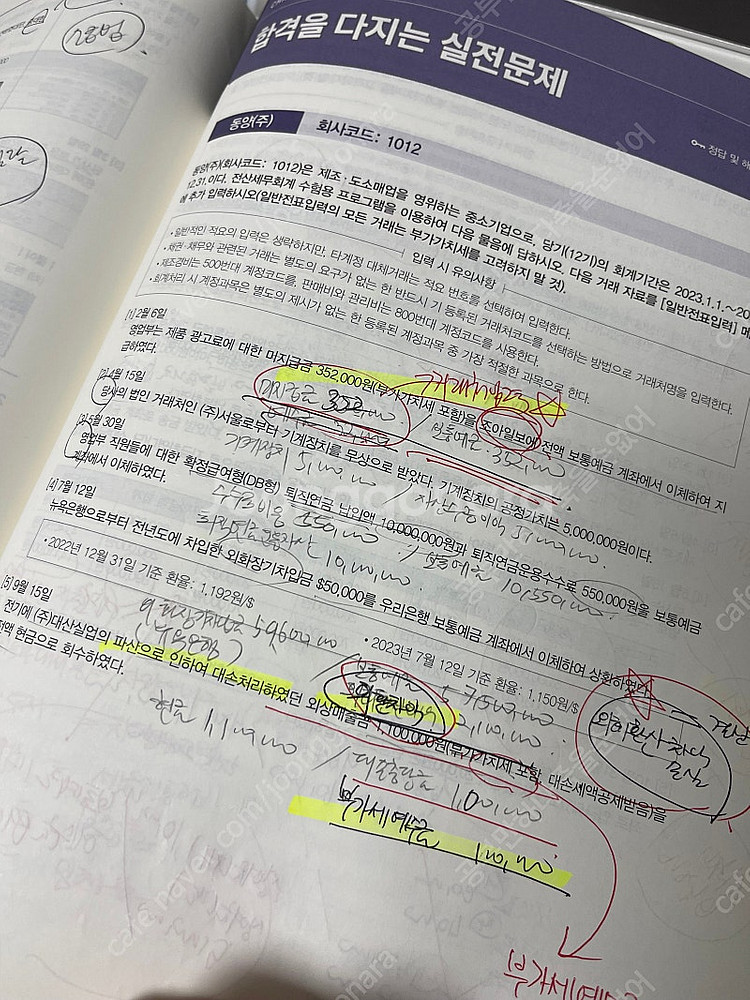 합격을 다지는 실전문제
정답 및 해
동양(주) 회사코드: 1012
동양(주)(회사코드: 1012)은 제조·도소매업을 영위하는 중소기업으로, 당기(12기)의 회계기간은 2023.1.1.~20
12.31.이다. 전산세무회계 수험용 프로그램을 이용하여 다음 물음에 답하시오. 다음 거래 자료를 [일반전표입력] 메
에 추가 입력하시오(일반전표입력의 모든 거래는 부가가치세를 고려하지 말 것).
입력 시 유의사항
• 일반적인 적요의 입력은 생략하지만, 타계정 대체거래는 적요 번호를 선택하여 입력한다.
• 채권·채무와 관련된 거래는 별도의 요구가 없는 한 반드시 기 등록된 거래처코드를 선택하는 방법으로 거래처명을 입력한다.
• 제조경비는 500번대 계정코드를, 판매비와 관리비는 800번대 계정코드를 사용한다.
• 회계처리 시 계정과목은 별도의 제시가 없는 한 등록된 계정과목 중 가장 적절한 과목으로 한다.
[1] 2월 6일
영업부는 제품 광고료에 대한 미지급금 352,000원(부가가치세 포함)을 조아일보에 전액 보통예금 계좌에서 이체하여 지
급하였다.
미지급금 352,000 / 보통예금 352,000
[2] 4월 15일
당사의 법인 거래처인 (주)서울로부터 기계장치를 무상으로 받았다. 기계장치의 공정가치는 5,000,000원이다.
기계장치 5,000,000 / 자산수증이익 5,000,000
[3] 5월 30일
영업부 직원들에 대한 확정급여형(DB형) 퇴직연금 납입액 10,000,000원과 퇴직연금운용수수료 550,000원을 보통예금
계좌에서 이체하였다.
수수료비용 550,000
퇴직연금운용자산 10,000,000 / 보통예금 10,550,000
[4] 7월 12일
뉴욕은행으로부터 전년도에 차입한 외화장기차입금 $50,000를 우리은행 보통예금 계좌에서 이체하여 상환하였다.
• 2022년 12월 31일 기준 환율: 1,192원/$ • 2023년 7월 12일 기준 환율: 1,150원/$
외화장기차입금 59,600,000 / 보통예금 57,500,000
(뉴욕은행) 외환차익 2,100,000
[5] 9월 15일
전기에 (주)대산실업의 파산으로 인하여 대손처리하였던 외상매출금 1,100,000원(부가가치세 포함, 대손세액공제받음)을
전액 현금으로 회수하였다.
현금 1,100,000 / 대손충당금 1,000,000
부가세예수금 100,000